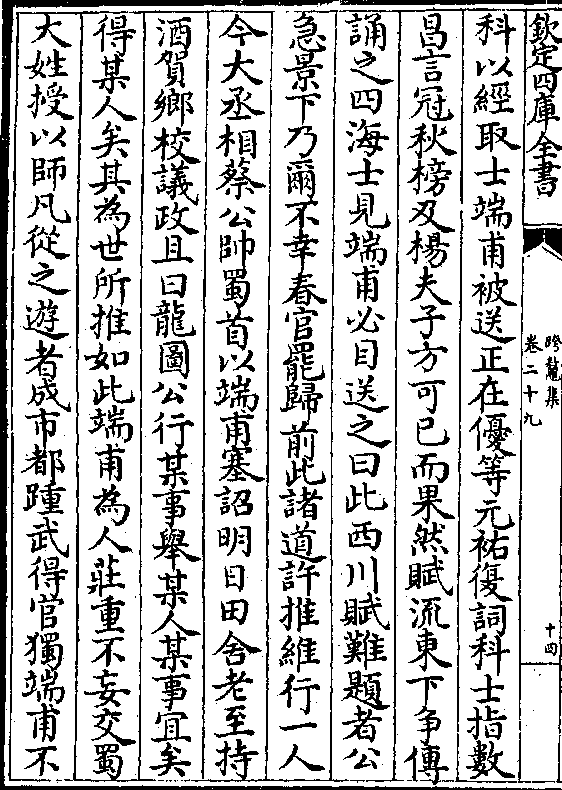 欽定四庫全書
跨鼇集
卷二十九
十四
科以經取士端甫被送正在優等元祐復詞科士指數
昌言冠秋榜及楊夫子方可已而果然賦流東下争傳
誦之四海士見端甫必目送之曰此西川賦難題者公
急景下乃爾不幸春官罷歸前此諸道許推維行一人
今大丞相蔡公帥蜀首以端甫塞詔明日田舎老至持
酒賀鄉校議政且曰龍圖公行某事舉某人某事宜矣
得某人矣其為世所推如此端甫為人莊重不妄交蜀
大姓授以師凡從之遊者成市都踵武得官獨端甫不